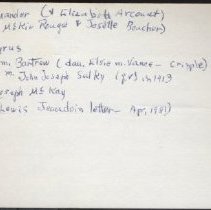 xander (& Elizabeth Arcouet)
McKie Rouge & Josette Boucher)
yrus
m. Bartrow (dau. Elsie m. Vanne - cripple)
m. John Joseph Salley (qv) in 1913
oseph McKay
Lewis Jeaudoin letter - Apr, 1981)